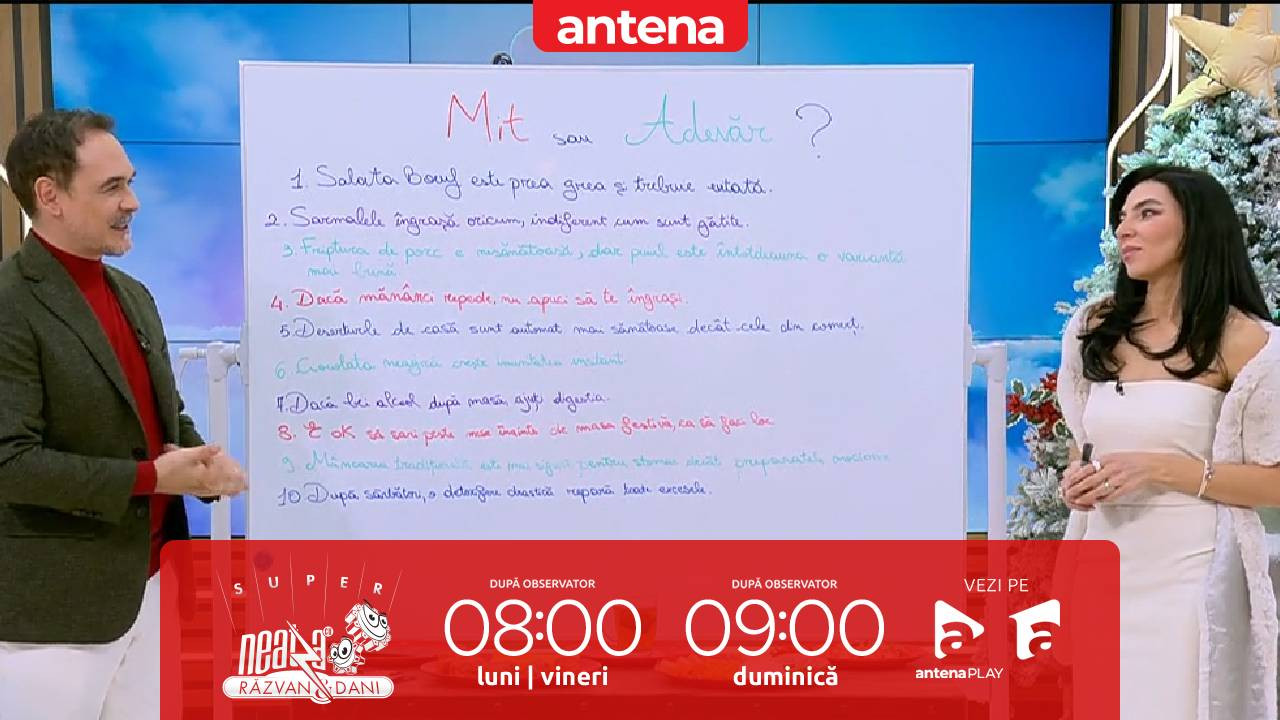 antena
Mit sau Adevăr ?
1. Salata Boeuf este prea grea și trebuie evitată.
2. Sarmalele îngrașă oricum, indiferent cum sunt gătite.
3. Friptura de porc e nesănătoasă, dar puiul este întotdeauna o variantă
mai bună
4. Dacă mănânci repede, nu apuci să te îngrași.
5. Deserturile de casă sunt automat mai sănătoase decât cele din comerț.
6. Ciocolata neagră crește imunitatea instant
7. Dacă bei alcool după masă, ajuți digestia.
8. E OK să sari peste mese înainte de masa festivă, ca să faci loc
9. Mâncarea tradițională este mai sigură pentru stomac decât preparatele
10. După sărbători, o detoxifiere drastică repară toate excesele.
SUPER
neatza
RĂZVAN & DANI
DUPĂ OBSERVATOR
08:00
luni | vineri
DUPĂ OBSERVATOR
09:00
duminică
VEZI PE
a
antena PLAY